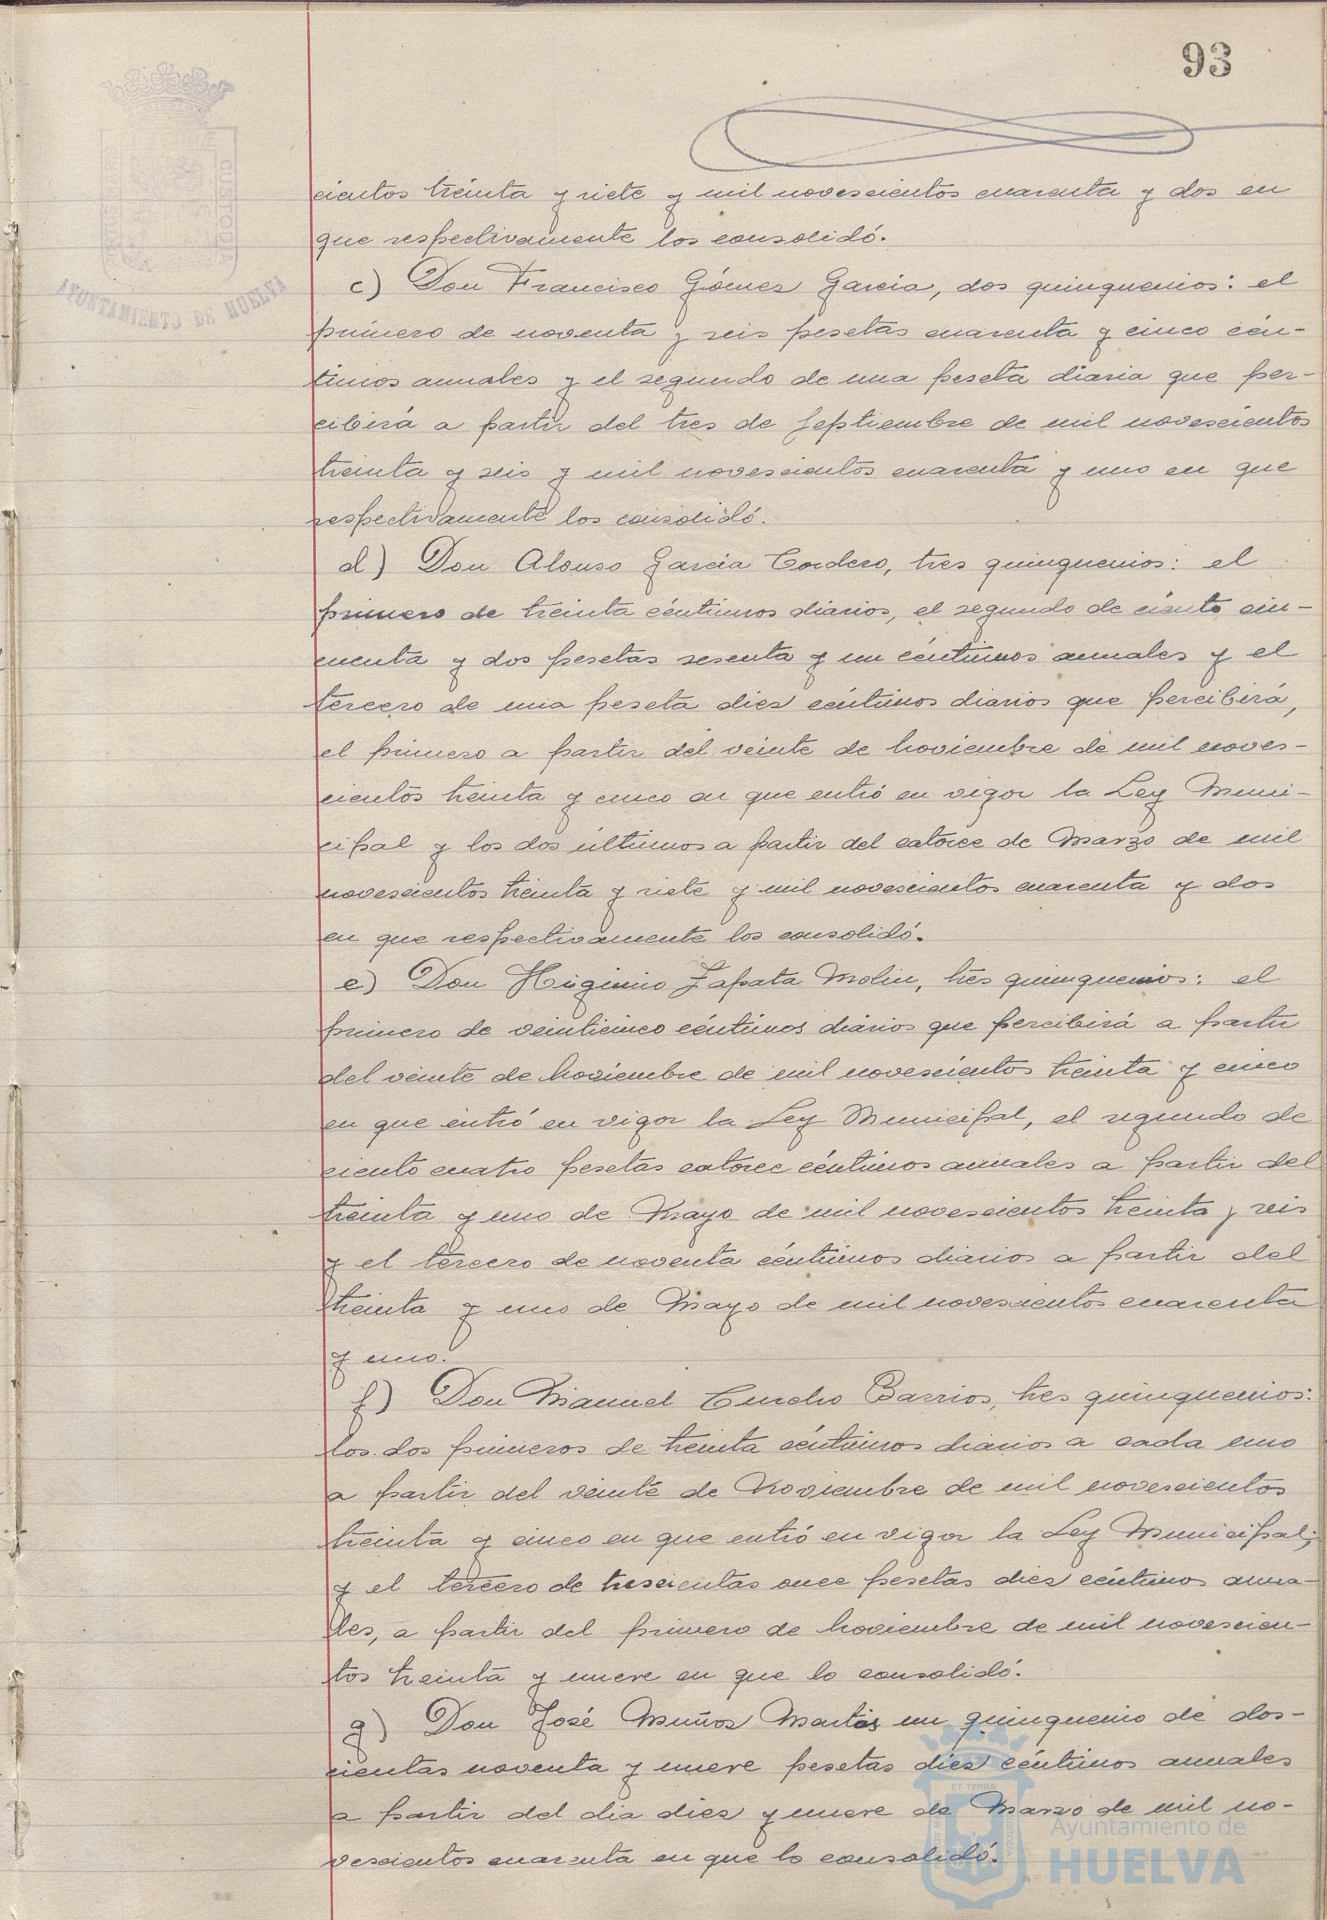 93
AYUNTAMIENTO DE HUELVA
cientos treinta y siete y mil novescientos cuarenta y dos en
que respectivamente los consolidó.
c) Don Francisco Gómez García, dos quinquenios: el
primero de noventa y seis pesetas cuarenta y cinco cén-
timos anuales y el segundo de una peseta diaria que per-
cibirá a partir del tres de Septiembre de mil novescientos
treinta y seis y mil novescientos cuarenta y uno en que
respectivamente los consolidó.
d) Don Alonso García Cordero, tres quinquenios: el
primero de treinta céntimos diarios, el segundo de ciento cin-
cuenta y dos pesetas sesenta y un céntimos anuales y el
tercero de una peseta diez céntimos diarios que percibirá,
el primero a partir del veinte de noviembre de mil noves-
cientos treinta y cinco en que entró en vigor la Ley Muni-
cipal y los dos últimos a partir del catorce de Marzo de mil
novescientos treinta y siete y mil novescientos cuarenta y dos
en que respectivamente los consolidó.
e) Don Higinio Zapata Molin, tres quinquenios: el
primero de veinticinco céntimos diarios que percibirá a partir
del veinte de noviembre de mil novescientos treinta y cinco
en que entró en vigor la Ley Municipal, el segundo de
ciento cuatro pesetas catorce céntimos anuales a partir del
treinta y uno de Mayo de mil novescientos treinta y seis
y el tercero de noventa céntimos diarios a partir del
treinta y uno de Mayo de mil novescientos cuarenta
y uno.
f) Don Manuel Barrios, tres quinquenios:
los dos primeros de treinta céntimos diarios a cada uno
a partir del veinte de Noviembre de mil novescientos
treinta y cinco en que entró en vigor la Ley Municipal;
y el tercero de trescientas once pesetas diez céntimos anua-
les, a partir del primero de noviembre de mil novescien-
tos treinta y nueve en que lo consolidó.
g) Don José Muños Martín un quinquenio de dos-
cientas noventa y nueve pesetas diez céntimos anuales
a partir del dia diez y nueve de Marzo de mil no-
vescientos cuarenta en que lo consolidó.
Ayuntamiento de
HUELVA